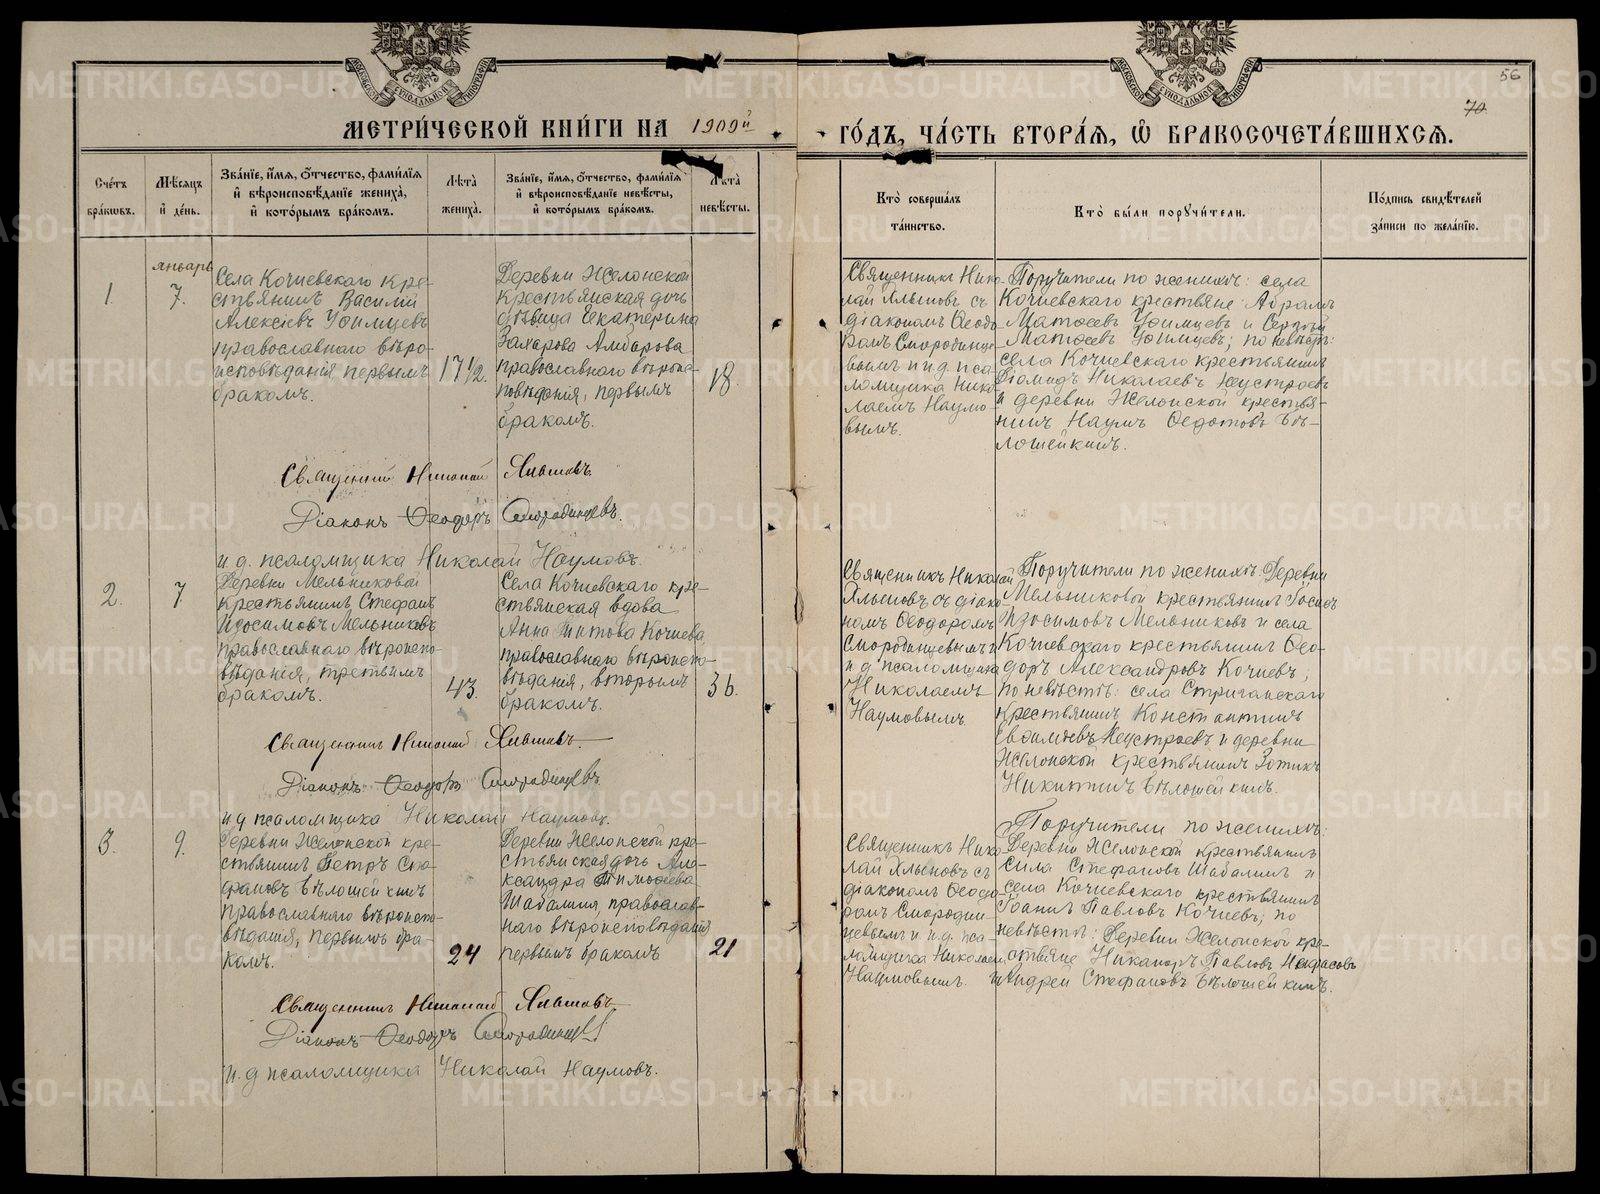 56
70
МЕТРИ́ЧЕСКОЙ КНИ́ГИ НА 1909й
ГО́ДЪ, ЧА́СТЬ ВТОРА́Я, Ѡ БРАКОСОЧЕТА́ВШИХСЯ.
Сче́тъ
бра́кѡвъ.
Мѣ́сяцъ
и де́нь.
Зва́нїе, и́мя, ѻ́тчество, фами́лїя
и вѣроисповѣ́данїе жениха̀,
и кото́рымъ бра́комъ.
Лѣ́та
жениха̀.
Зва́нїе, и́мя, ѻ́тчество, фами́лїя
и вѣроисповѣ́данїе невѣ́сты,
и кото́рымъ бра́комъ.
Лѣ́та
невѣ́сты.
Кто̀ соверша́лъ
та́инство.
Кто̀ бы́ли поручи́тели.
По́дпись свидѣ́телей
за́писи по жела́нїю.
1.
январь
7.
Села Кочневскаго кре-
стьянинъ Василій
Алексіевъ Уфимцевъ
православнаго вѣро-
исповѣданія, первымъ
бракомъ.
17 1/2.
Деревни Жилонской
крестьянская дочь
дѣвица Екатерина
Захарова
православнаго вѣроис-
повѣданія, первымъ
бракомъ.
18.
Священникъ Нико-
лай съ
діакономъ Ѳеодо-
ромъ Смородинце-
вымъ и и.д. пса-
ломщика Нико-
лаемъ Наумо-
вымъ.
Поручители по женихѣ: села
Кочневскаго крестьяне: Абрамъ
Матѳеевъ Уфимцевъ и Сергѣй
Матѳеевъ Уфимцевъ; по невѣстѣ:
села Кочневскаго крестьянинъ
Діомидъ Николаевъ Неустроевъ
и деревни Жилонской крестья-
нинъ Наумъ Ѳедотовъ Бѣ-
лошейкинъ.
Священникъ Николай
Діаконъ Ѳеодоръ Смородинцевъ.
и.д. псаломщика Николай Наумовъ.
2.
7
Деревни Мельниковой
крестьянинъ Стефанъ
Изосимовъ Мельниковъ
православнаго вѣроиспо-
вѣданія, третьимъ
бракомъ.
43.
Села Кочневскаго кре-
стьянская вдова
Анна Титова Кочнева
православнаго вѣроиспо-
вѣданія, вторымъ
бракомъ.
36.
Священникъ Николай
съ діако-
номъ Ѳеодоромъ
Смородинцевымъ и
и.д. псаломщика
Николаемъ
Наумовымъ.
Поручители по женихѣ: Деревни
Мельниковой крестьянинъ
Изосимовъ Мельниковъ и села
Кочневскаго крестьянинъ Ѳео-
доръ Александровъ Кочневъ;
по невѣстѣ: села Стриганскаго
крестьянинъ Константинъ
Евфиміевъ Неустроевъ и деревни
Жилонской крестьянинъ Зотикъ
Никитинъ Бѣлошейкинъ.
Священникъ Николай
Діаконъ Ѳеодоръ Смородинцевъ
и.д. псаломщика Николай Наумовъ.
3.
9.
Деревни Жилонской кре-
стьянинъ Петръ Сте-
фановъ Бѣлошейкинъ
православнаго вѣроиспо-
вѣданія, первымъ бра-
комъ.
24
Деревни Жилонской кре-
стьянская дочь Але-
ксандра Тимоѳеева
Шабалина, православ-
наго вѣроисповѣданія
первымъ бракомъ
21
Священникъ Нико-
лай съ
діакономъ Ѳеодо-
ромъ Смородин-
цевымъ и и.д. пса-
ломщика Николаемъ
Наумовымъ.
Поручители по женихѣ:
Деревни Жилонской крестьянинъ
Сила Стефановъ Шабалинъ и
села Кочневскаго крестьянинъ
Іоаннъ Павловъ Кочневъ; по
невѣстѣ: Деревни Жилонской кре-
стьяне Никаноръ Павловъ Некрасовъ
и Андрей Стефановъ Бѣлошейкинъ.
Священникъ Николай
Діаконъ Ѳеодоръ Смородинцевъ
и.д. псаломщика Николай Наумовъ.
METRIKI.GASO-URAL.RU